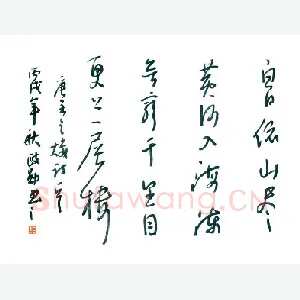 白日依山尽
黄河入海流
欲穷千里目
更上一层楼
唐王之涣诗一首
丙戌年秋
Shufawang.CN